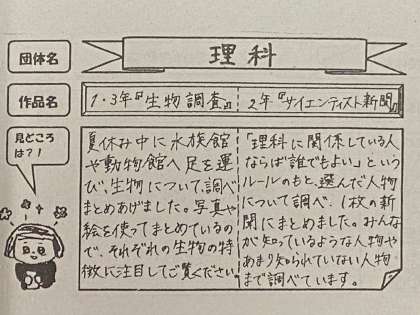 団体名
理科
作品名
1・3年『生物調査』
2年『サイエンティスト新聞』
見どころ
は?!
夏休み中に水族館
や動物館へ足を運
び、生物について調べ
まとめあげました。写真や
絵を使ってまとめているの
で、それぞれの生物の特
徴に注目してご覧ください。
「理科に関係している人
ならば誰でもよい」という
ルールのもと、選んだ人物
について調べ、1枚の新
聞にまとめました。みんな
が知っているような人物や
あまり知られていない人物
まで調べています。